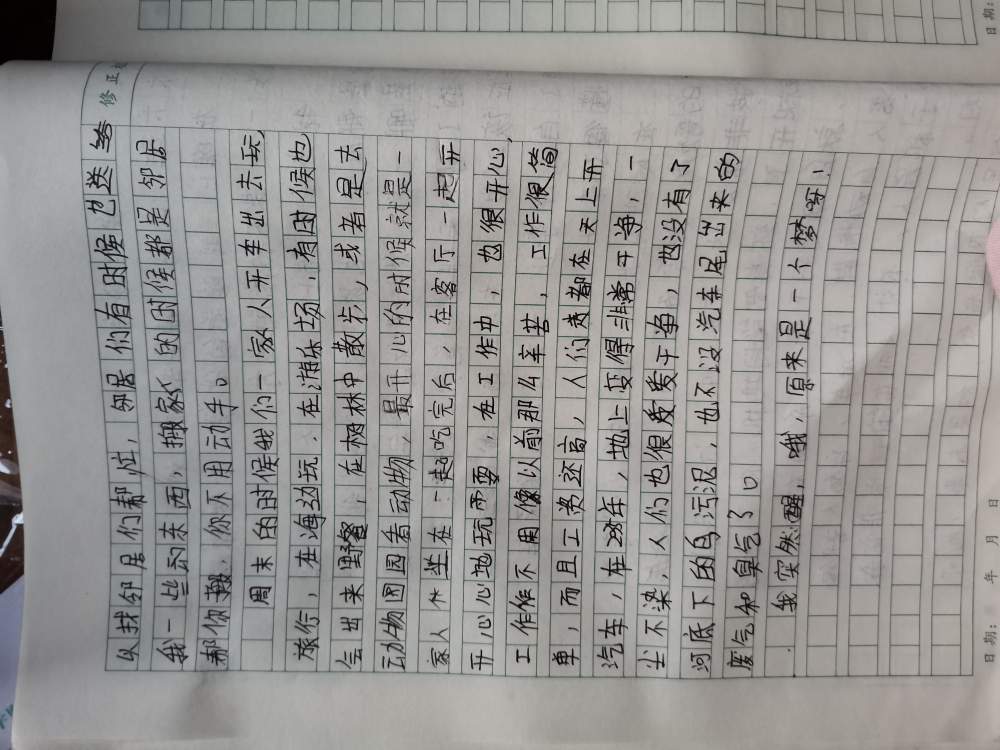 修正
以找邻居们帮忙，邻居们有时候也送给
我一些的东西，搬家的时候都是邻居
帮你搬，你不用动手。
周末的时候我们一家人开车出去玩
旅行，在海边玩，在游乐场，有时候也
会出来野餐，在树林中散步，或者是去
动物园看动物，最开心的时候就是一
家人坐在一起吃完后，在客厅一起开
开心心地玩耍，在工作中，也很开心，
工作不用像以前那么辛苦，工作很简
单，而且工资还高，人们都在天上开
汽车，在28年，地上变得非常干净，一
尘不染，人们也很爱干净，也没有了
河底下的乌污泥，也不没汽车尾出来的
废气和臭气了。
我突然醒，哦，原来是一个梦呀！
日期： 年 月 日
日期：